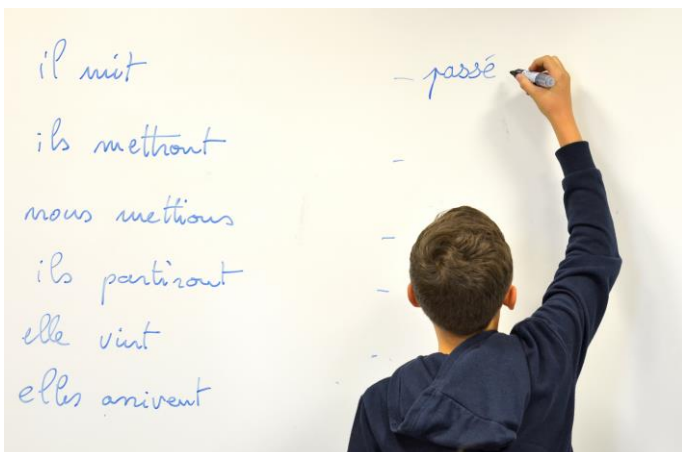 il mit - passé
ils mettront -
nous mettions -
ils partiront -
elle vint -
elles arrivent